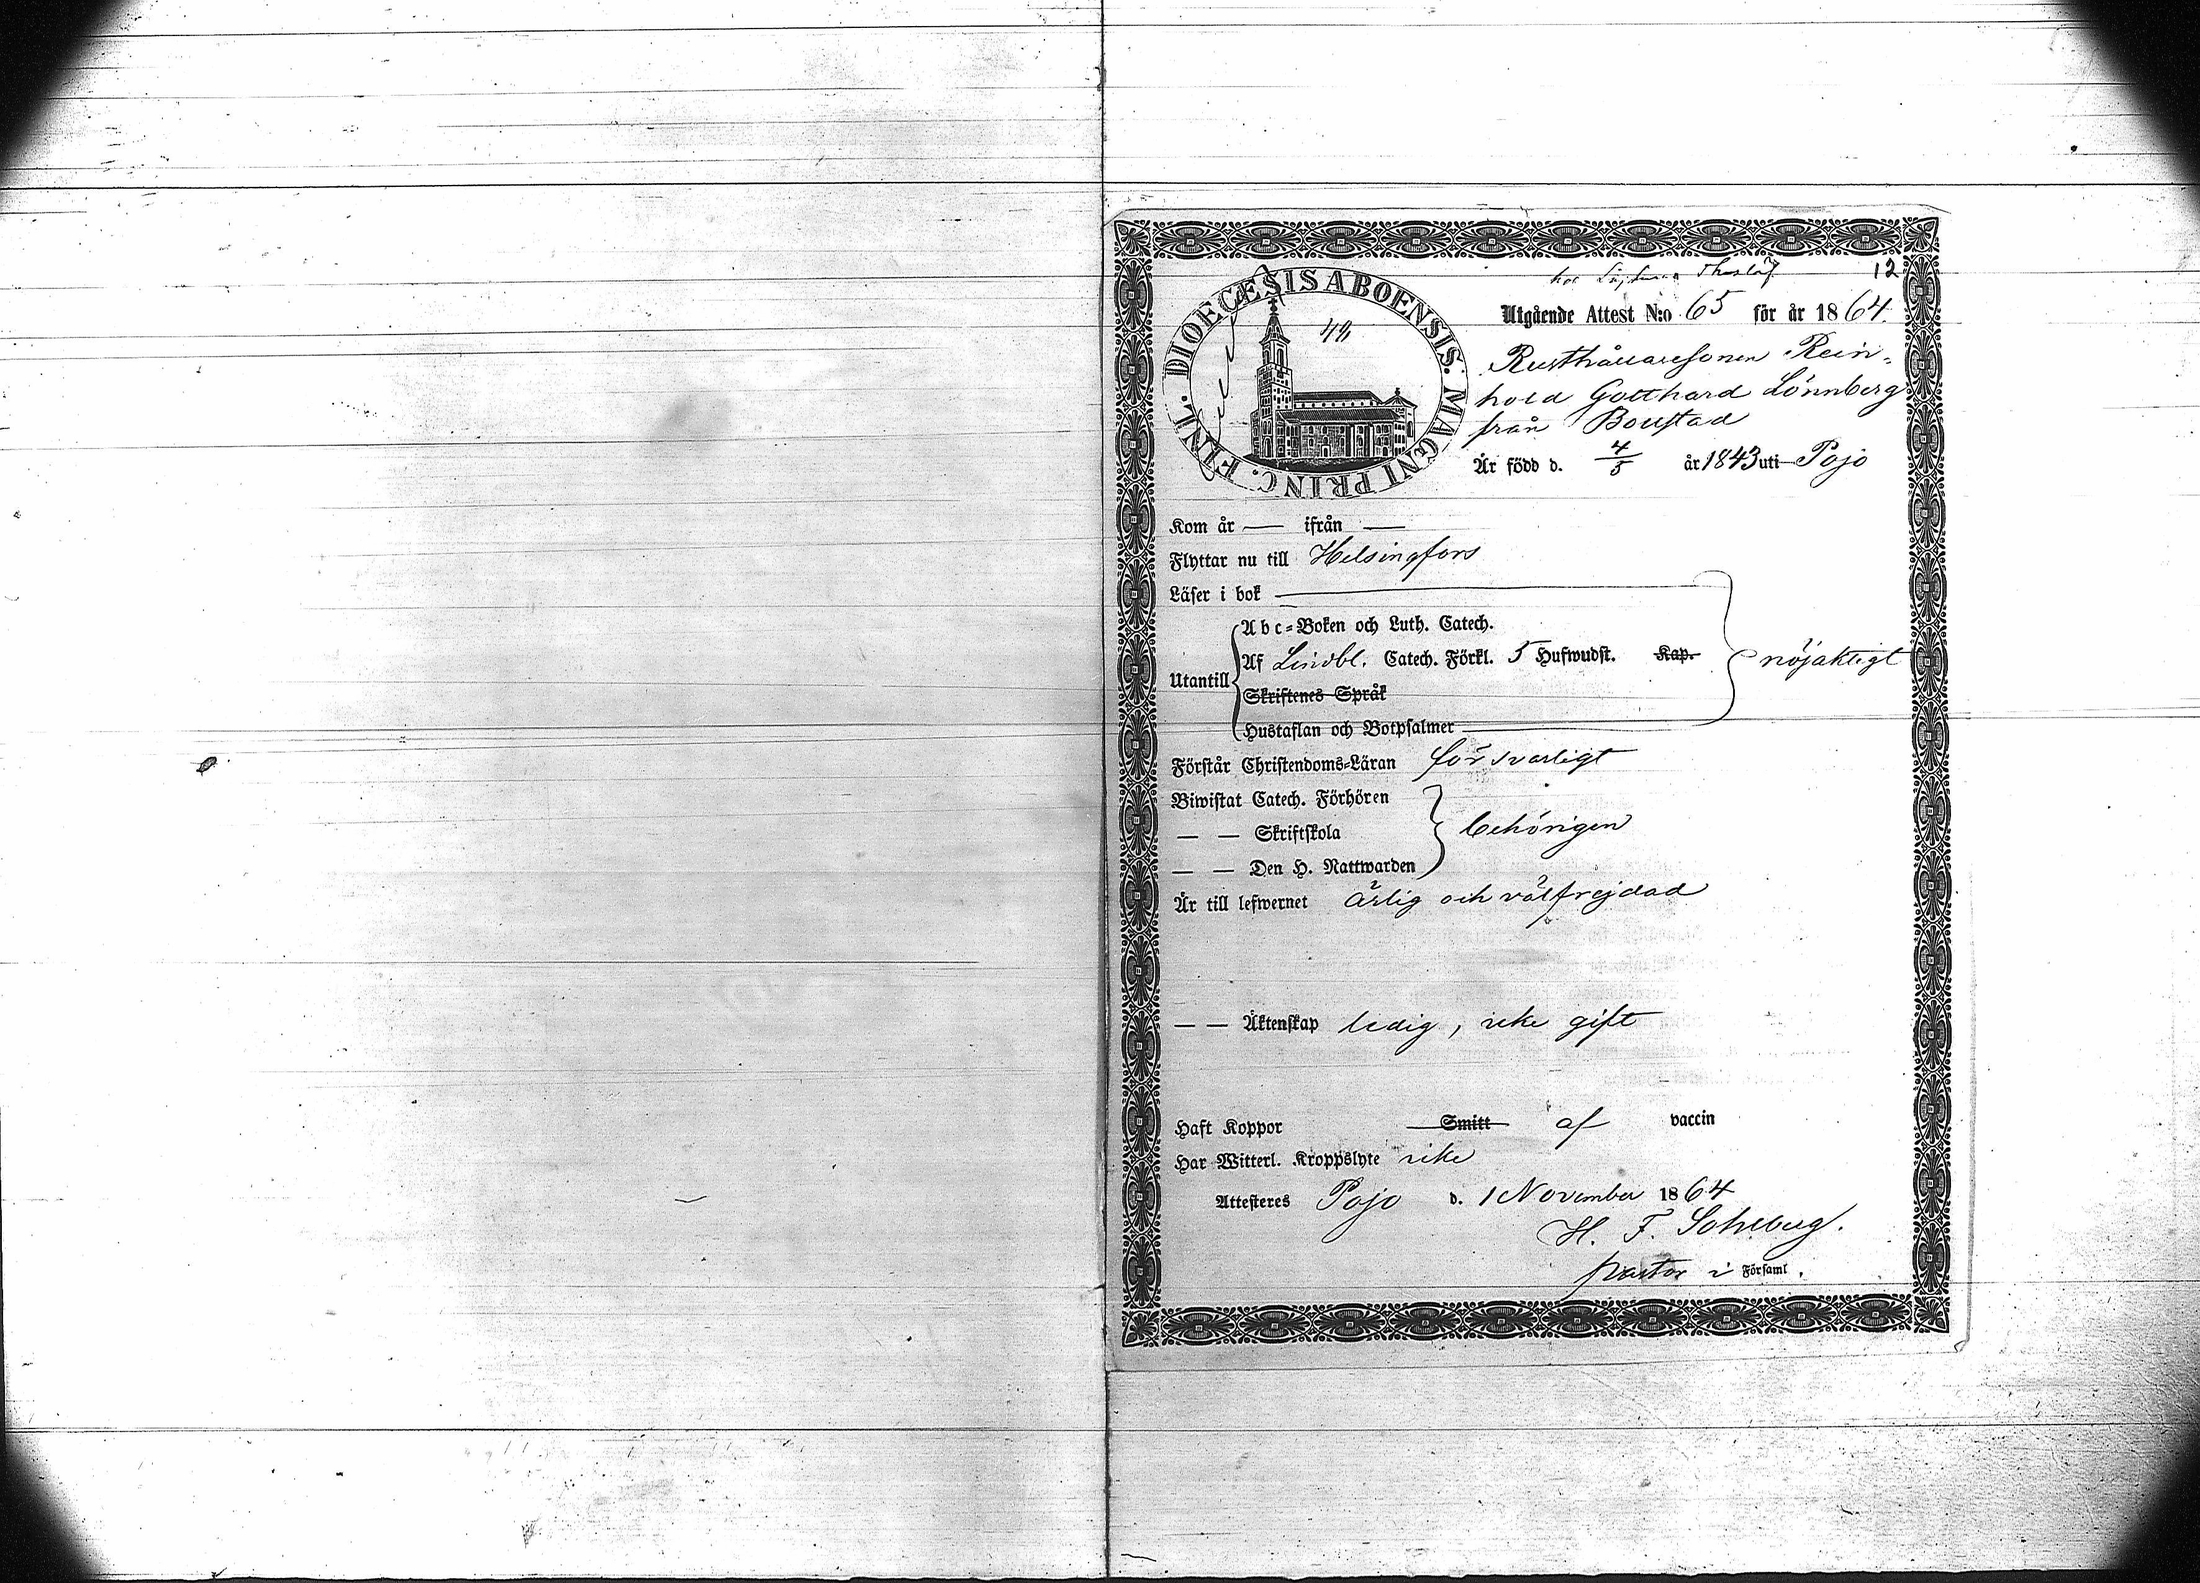 12
DIOECÆSIS ABOENSIS. MAGNI PRINC. FINL.
48
Utgående Attest N:o 65 för år 1864.
Rusthållaresonen Rein-
hold Gotthard Lönnberg
från Boustad
Är född d. 4/5 år 1843 uti Pojo
Kom år — ifrån —
Flyttar nu till Helsingfors
Läser i bok
Abc-Boken och Luth. Catech.
Utantill Af Lindbl. Catech. Förkl. 5 Hufwudst. Kap. nöjaktigt
Skriftenes Språk
Hustaflan och Botpsalmer
Förstår Christendoms-Läran försvarligt
Biwistat Catech. Förhören
— — Skriftskola behörigen
— — Den H. Nattwarden
Är till lefwernet ärlig och välfrejdad
— — Äktenskap ledig, icke gift
Haft Koppor Smitt af vaccin
Har Witterl. Kroppslyte icke
Attesteres Pojo d. 1 November 1864
H. F. Sohlberg.
Pastor i Församl.